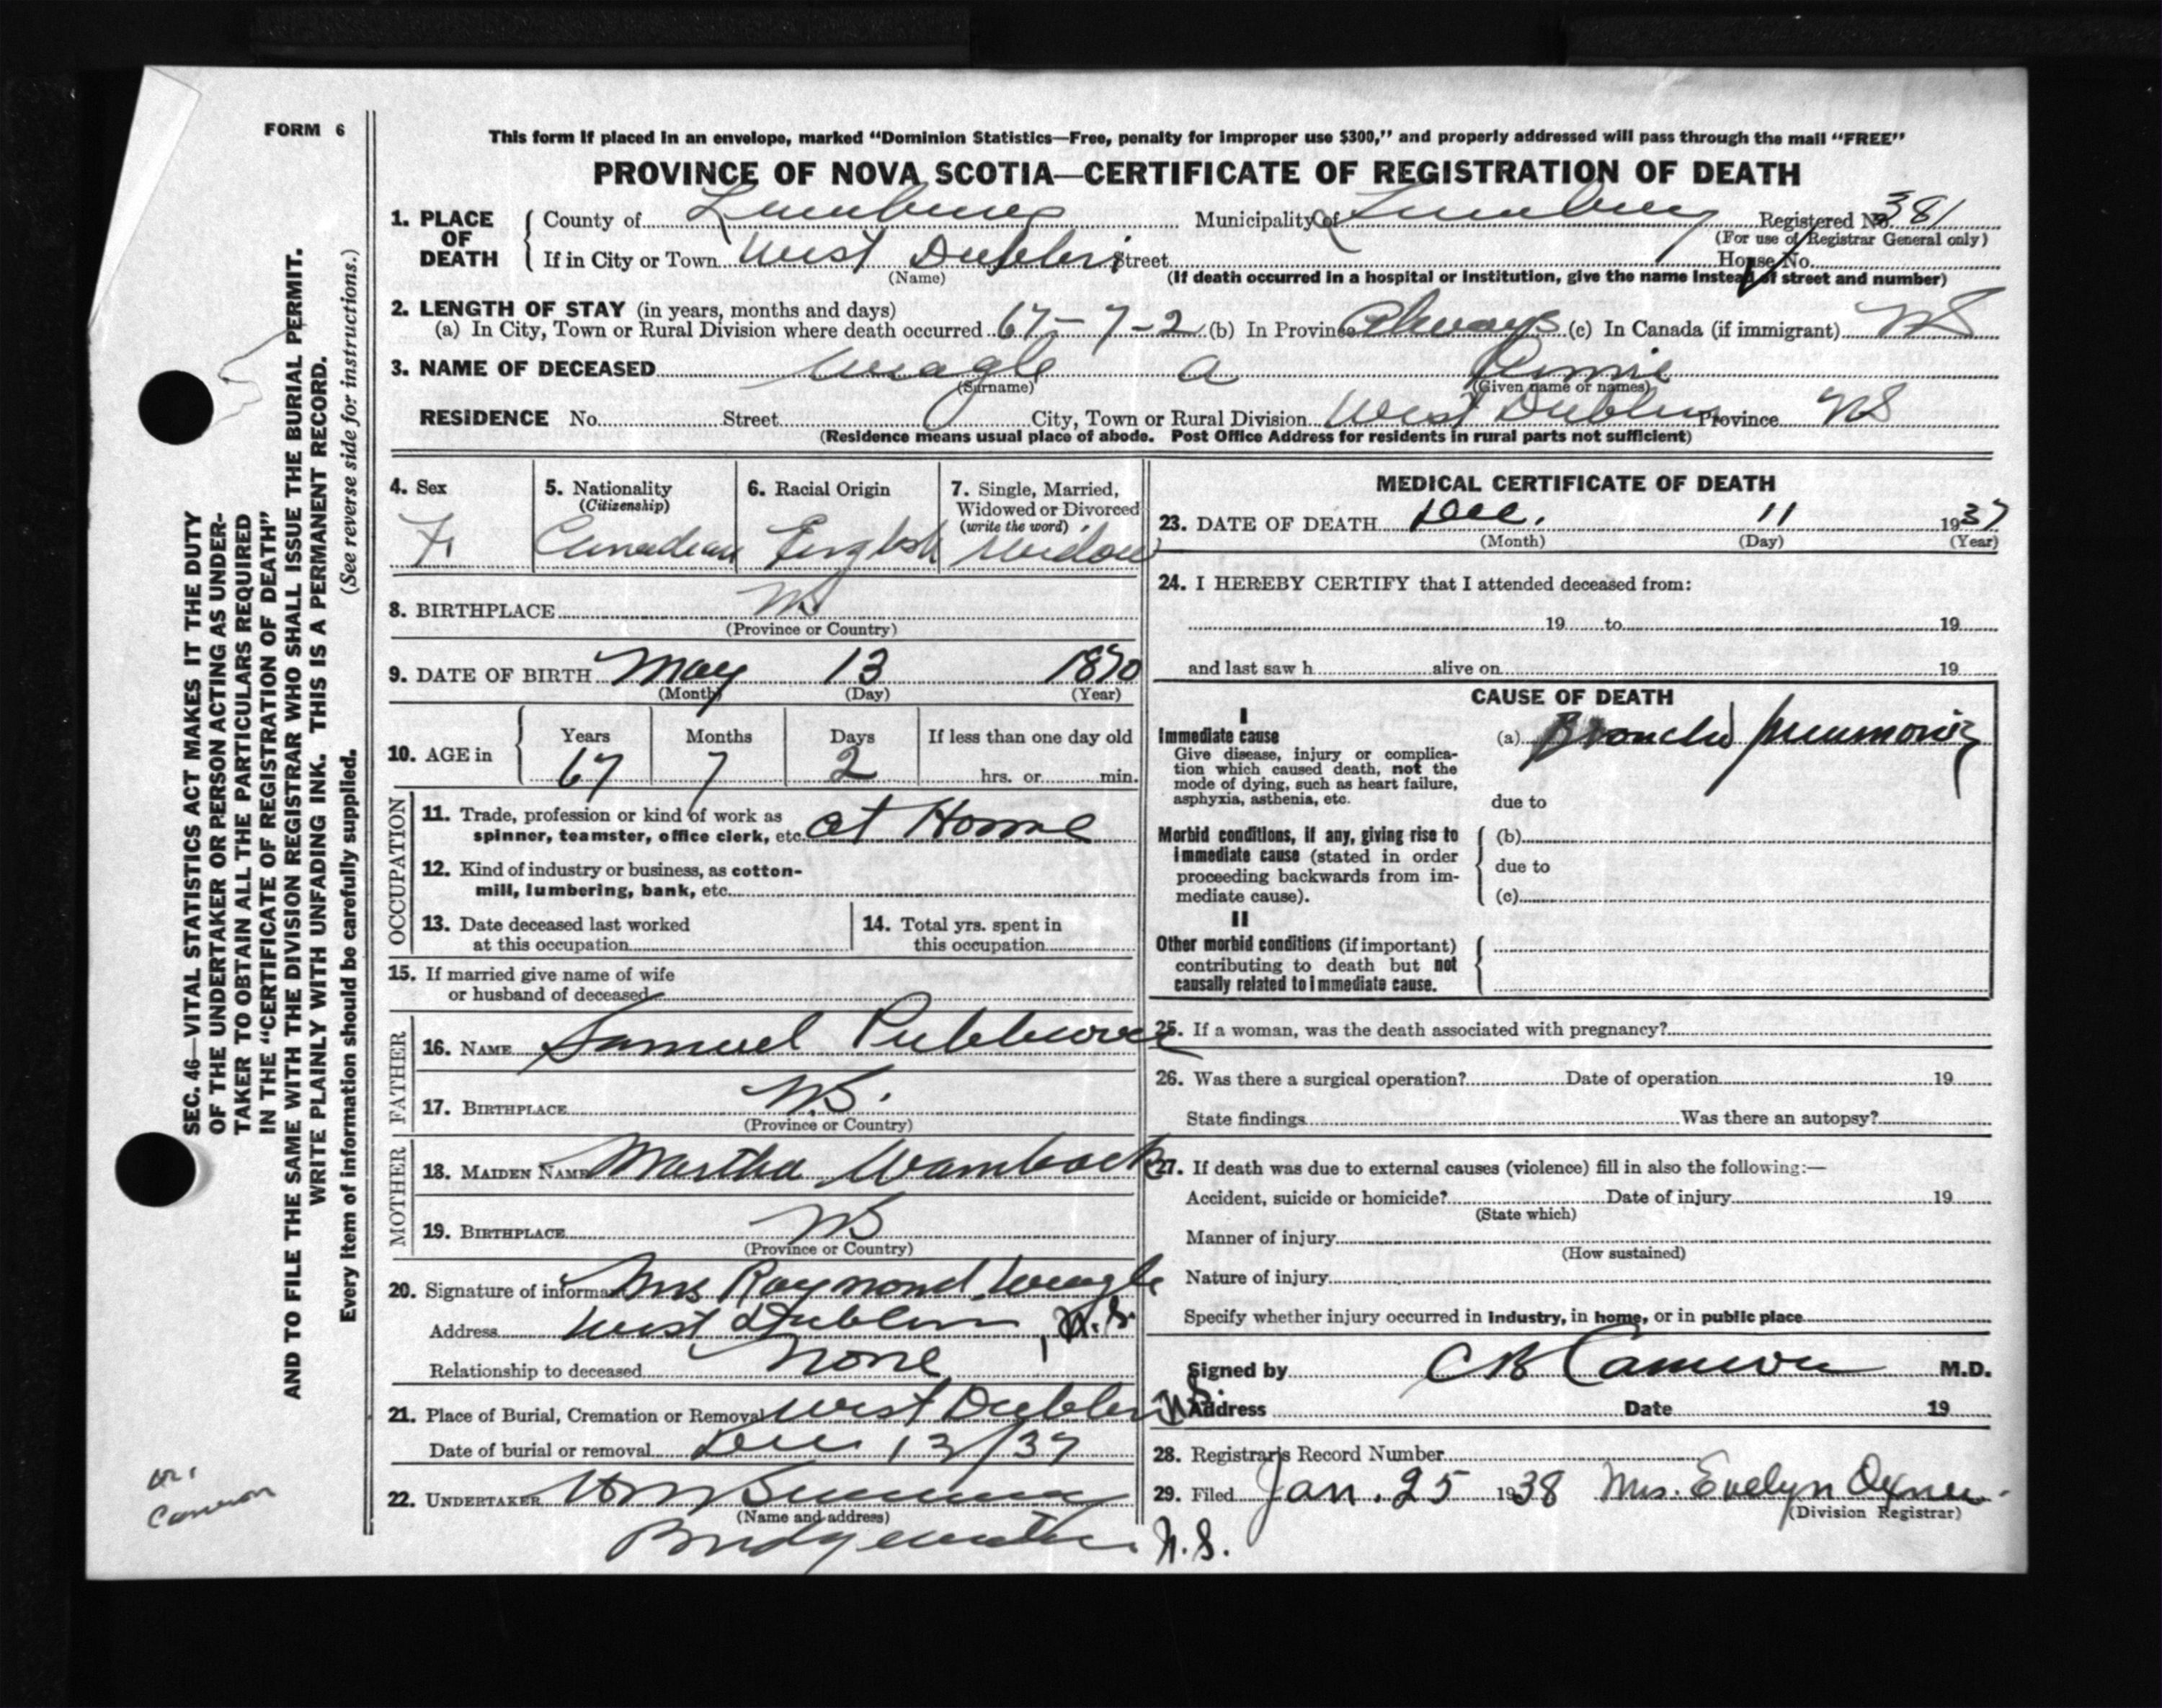 FORM 6
This form if placed in an envelope, marked “Dominion Statistics—Free, penalty for improper use $300,” and properly addressed will pass through the mail “FREE”
PROVINCE OF NOVA SCOTIA—CERTIFICATE OF REGISTRATION OF DEATH
1. PLACE OF DEATH County of Lunenburg Municipality of Lunenburg Registered No. 381
(For use of Registrar General only)
If in City or Town West Dublin Street House No.
(Name) (If death occurred in a hospital or institution, give the name instead of street and number)
2. LENGTH OF STAY (in years, months and days)
(a) In City, Town or Rural Division where death occurred 67-7-2 (b) In Province Always (c) In Canada (if immigrant) NS
3. NAME OF DECEASED Weagle A Annie
(Surname) (Given name or names)
RESIDENCE No. Street City, Town or Rural Division West Dublin Province NS
(Residence means usual place of abode. Post Office Address for residents in rural parts not sufficient)
4. Sex 5. Nationality 6. Racial Origin 7. Single, Married,
(Citizenship) Widowed or Divorced
(write the word)
F. Canadian English Widow
8. BIRTHPLACE N.S.
(Province or Country)
9. DATE OF BIRTH May 13 1870
(Month) (Day) (Year)
10. AGE in Years Months Days If less than one day old
67 7 2 hrs. or min.
OCCUPATION
11. Trade, profession or kind of work as
spinner, teamster, office clerk, etc. at Home
12. Kind of industry or business, as cotton-
mill, lumbering, bank, etc.
13. Date deceased last worked
at this occupation
14. Total yrs. spent in
this occupation
15. If married give name of wife
or husband of deceased
FATHER
16. NAME Samuel Publicover
17. BIRTHPLACE N.S.
(Province or Country)
MOTHER
18. MAIDEN NAME Martha Wamback
19. BIRTHPLACE NS
(Province or Country)
20. Signature of informant Mrs Raymond Weagle
Address West Dublin, N.S.
Relationship to deceased none
21. Place of Burial, Cremation or Removal West Dublin N.S.
Date of burial or removal Dec 13/37
22. UNDERTAKER
(Name and address)
Bridgewater N.S.
MEDICAL CERTIFICATE OF DEATH
23. DATE OF DEATH Dec. 11 1937
(Month) (Day) (Year)
24. I HEREBY CERTIFY that I attended deceased from:
19 to 19
and last saw h alive on 19
CAUSE OF DEATH
I
Immediate cause (a) Broncho pneumonia
Give disease, injury or complica-
tion which caused death, not the
mode of dying, such as heart failure,
asphyxia, asthenia, etc.
due to
Morbid conditions, if any, giving rise to (b)
immediate cause (stated in order
proceeding backwards from im- due to
mediate cause). (c)
II
Other morbid conditions (if important)
contributing to death but not
causally related to immediate cause.
25. If a woman, was the death associated with pregnancy?
26. Was there a surgical operation? Date of operation 19
State findings Was there an autopsy?
27. If death was due to external causes (violence) fill in also the following:—
Accident, suicide or homicide? Date of injury 19
(State which)
Manner of injury
(How sustained)
Nature of injury
Specify whether injury occurred in industry, in home, or in public place
Signed by C B Cameron M.D.
Address Date 19
28. Registrar's Record Number
29. Filed Jan. 25 1938 Mrs. Evelyn Oxner
(Division Registrar)
SEC. 46—VITAL STATISTICS ACT MAKES IT THE DUTY
OF THE UNDERTAKER OR PERSON ACTING AS UNDER-
TAKER TO OBTAIN ALL THE PARTICULARS REQUIRED
IN THE “CERTIFICATE OF REGISTRATION OF DEATH”
AND TO FILE THE SAME WITH THE DIVISION REGISTRAR WHO SHALL ISSUE THE BURIAL PERMIT.
WRITE PLAINLY WITH UNFADING INK. THIS IS A PERMANENT RECORD.
Every item of information should be carefully supplied. (See reverse side for instructions.)
Dr.
Cameron